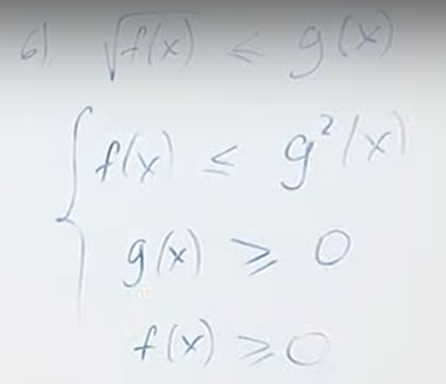 6) √f(x) ≤ g(x)
f(x) ≤ g²(x)
g(x) ≥ 0
f(x) ≥ 0